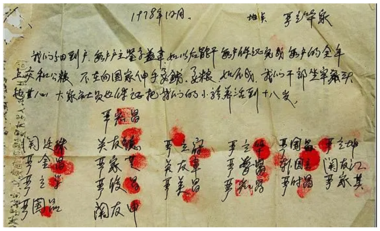 1978年12月. 地点 严立华家
我们分田到户,每户户主签字盖章,如以后能干,每户保证完成每户的全年
上交和公粮。不在向国家伸手要钱要粮。如不成,我们干部坐牢杀头
也甘心,大家社员也保证把我们的小孩养活到十八岁。
严宏昌
关廷珠 关友德 严立富 严立华 严国昌 严立坤
严金昌 严家芝 关友章 严学昌 韩国云 关友江
严立学 严俊昌 严美昌 严宏昌 严付昌 严家其
严国品 关友申